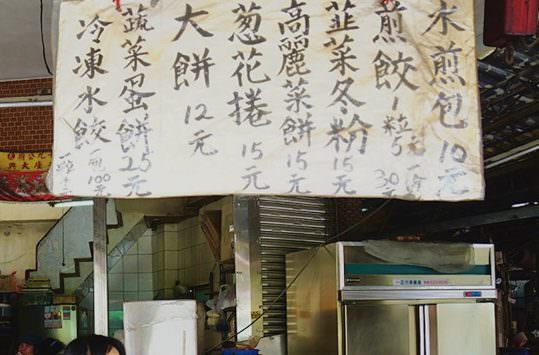 水煎包10元
煎餃1粒5元 30元
韮菜冬粉15元
高麗菜餅15元
葱花捲15元
大餅12元
蔬菜蛋餅25元
冷凍水餃 100元